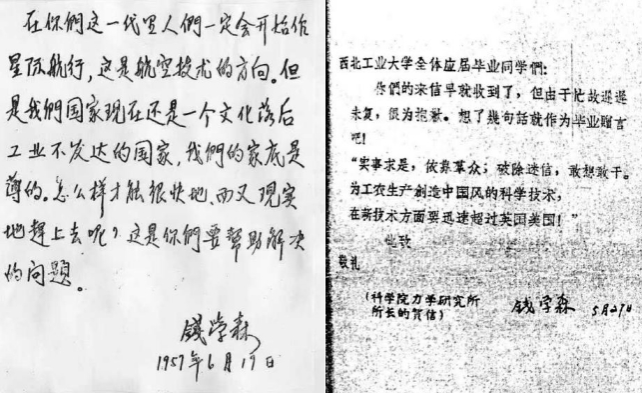 在你們这一代里人們一定会开始作
星际航行，这是航空技术的方向。但
是我們国家现在还是一个文化落后
工业不发达的国家，我們的家底是
薄的。怎么样才能很快地、而又现实
地趕上去呢？这是你們要幫助解决
的问题。
錢学森
1957年6月17日
西北工业大学全体应届毕业同学們：
你們的来信早就收到了，但由于忙故迟迟
未复，很为抱歉。想了幾句話就作为毕业赠言
吧！
“实事求是，依靠羣众；破除迷信，敢想敢干。
为工农生产創造中国风的科学技术，
在新技术方面要迅速超过英国美国！”
此致
敬礼
（科学院力学研究所
所长的贺信）
錢学森 5月27日